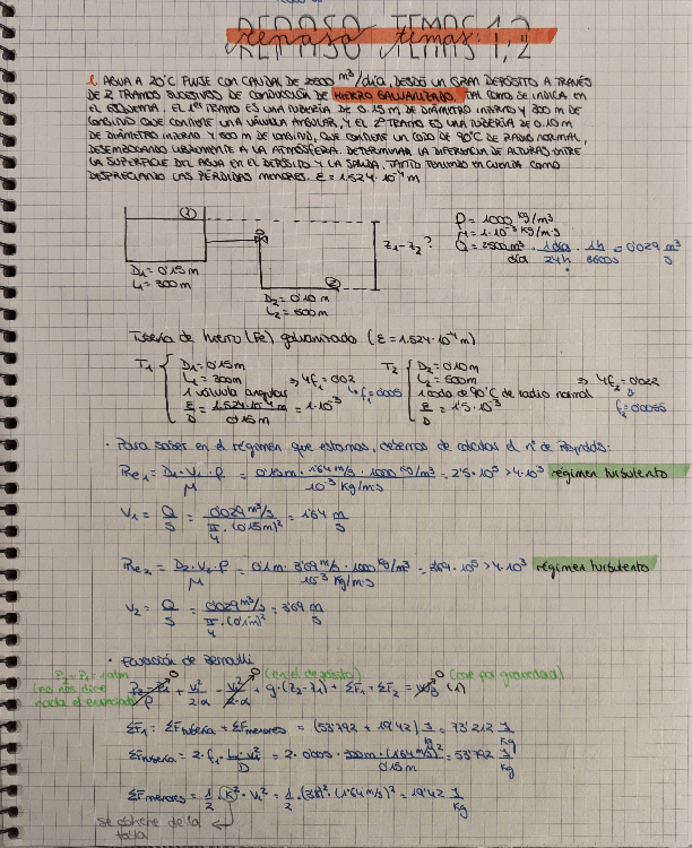 REPASO TEMAS 1,2
repaso temas: 1, 2
1. AGUA A 20°C FLUYE CON CAUDAL DE 2500 m³/día, DESDE UN GRAN DEPÓSITO A TRAVÉS
DE 2 TRAMOS SUCESIVOS DE CONDUCCIÓN DE HIERRO GALVANIZADO, TAL COMO SE INDICA EN
EL ESQUEMA. EL 1er TRAMO ES UNA TUBERÍA DE 0.15 m DE DIÁMETRO INTERNO Y 300 m DE
LONGITUD QUE CONTIENE UNA VÁLVULA ANGULAR, Y EL 2º TRAMO ES UNA TUBERÍA DE 0.10 m
DE DIÁMETRO INTERNO Y 500 m DE LONGITUD, QUE CONTIENE UN CODO DE 90°C DE RADIO NORMAL,
DESEMBOCANDO LIBREMENTE A LA ATMÓSFERA. DETERMINAR LA DIFERENCIA DE ALTURAS ENTRE
LA SUPERFICIE DEL AGUA EN EL DEPÓSITO Y LA SALIDA, TANTO TENIENDO EN CUENTA COMO
DESPRECIANDO LAS PÉRDIDAS MENORES. ε = 1.524·10⁻⁴ m
①
ρ = 1000 kg/m³
μ = 1·10⁻³ kg/m·s
z₁-z₂?
Q = 2500 m³/día · 1 día/24h · 1h/3600s = 0'029 m³/s
D₁ = 0'15 m
L₁ = 300 m
②
D₂ = 0'10 m
L₂ = 500 m
Tubería de hierro (Fe) galvanizado (ε = 1.524·10⁻⁴ m)
T₁ { D₁ = 0'15m
L₁ = 300m ⇒ 4f₁ = 0'02
1 válvula angular ↳ f₁ = 0'005
ε/D = 1.524·10⁻⁴ m/0'15 m = 1·10⁻³
T₂ { D₂ = 0'10m
L₂ = 500m ⇒ 4f₂ = 0'022
1 codo de 90°C de radio normal f₂ = 0'0055
ε/D = 1'5·10⁻³
· Para saber en el régimen que estamos, debemos de calcular el nº de Reynolds:
Re₁ = D₁·V₁·ρ/μ = 0'15m · 1'64 m/s · 1000 kg/m³/10⁻³ kg/m·s = 2'5·10⁵ > 4·10³ régimen turbulento
V₁ = Q/S = 0'029 m³/s/π/4·(0'15m)² = 1'64 m/s
Re₂ = D₂·V₂·ρ/μ = 0'1m · 3'69 m/s · 1000 kg/m³/10⁻³ kg/m·s = 3'69·10⁵ > 4·10³ régimen turbulento
V₂ = Q/S = 0'029 m³/s/π/4·(0'1m)² = 3'69 m/s
· Ecuación de Bernoulli
P₂ = P₁ = 1 atm
(no nos dice
nada el enunciado)
(en el depósito)
(cae por gravedad)
P₂-P₁/ρ + V₂²/2·α - V₁²/2·α + g·(z₂-z₁) + ΣF₁ + ΣF₂ = (1)
ΣF₁ = ΣF tubería + ΣF menores = (53'792 + 19'42) J/kg = 73'212 J/kg
ΣF tubería = 2·f₁·L₁·V₁²/D = 2·0'005·300m·(1'64m/s)²/0'15m = 53'792 J/Kg
ΣF menores = 1/2·K·V₁² = 1/2·(3'8)²·(1'64 m/s)² = 19'42 J/Kg
se obtiene de la
tabla